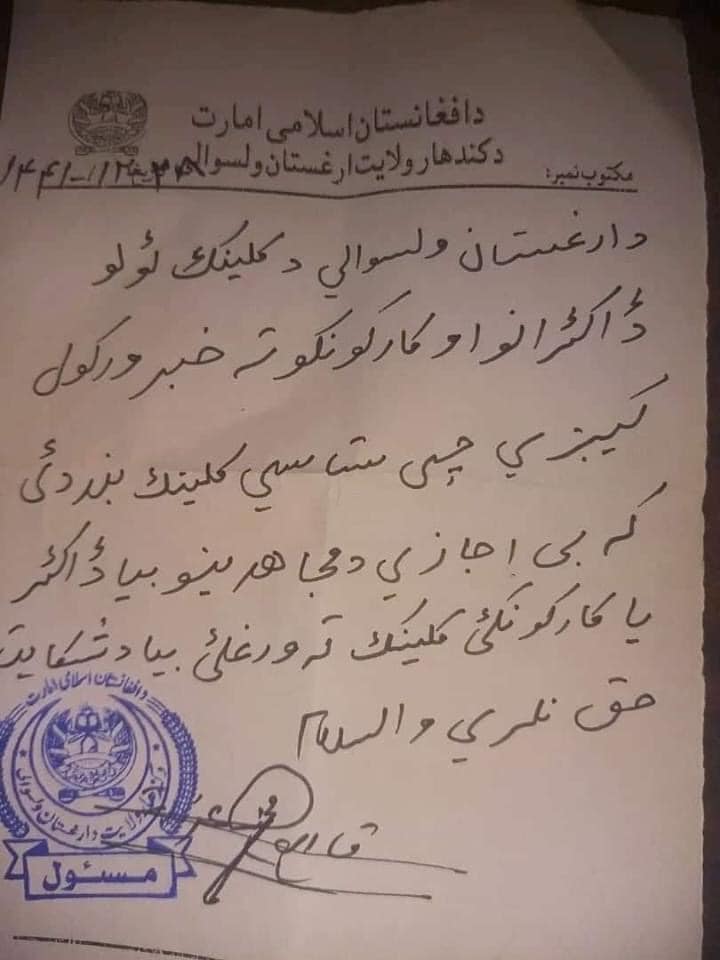 دافغانستان اسلامی امارت
دکندهار ولایت ارغستان ولسوالي
مکتوب نمبر:
۱۴۴۱
د ارغستان ولسوالي د کلینک ټولو
ډاکټرانو او کارکونکو ته خبر ورکول
کیږي چی ستاسي کلینک بند دئ
که بی اجازي د مجاهدینو بیا ډاکټر
یا کارکونکئ کلینک ته ورغلئ بیا د شکایت
حق نلري والسلام
دافغانستان اسلامی امارت
دکندهار ولایت دارغستان ولسوالی
مسئول